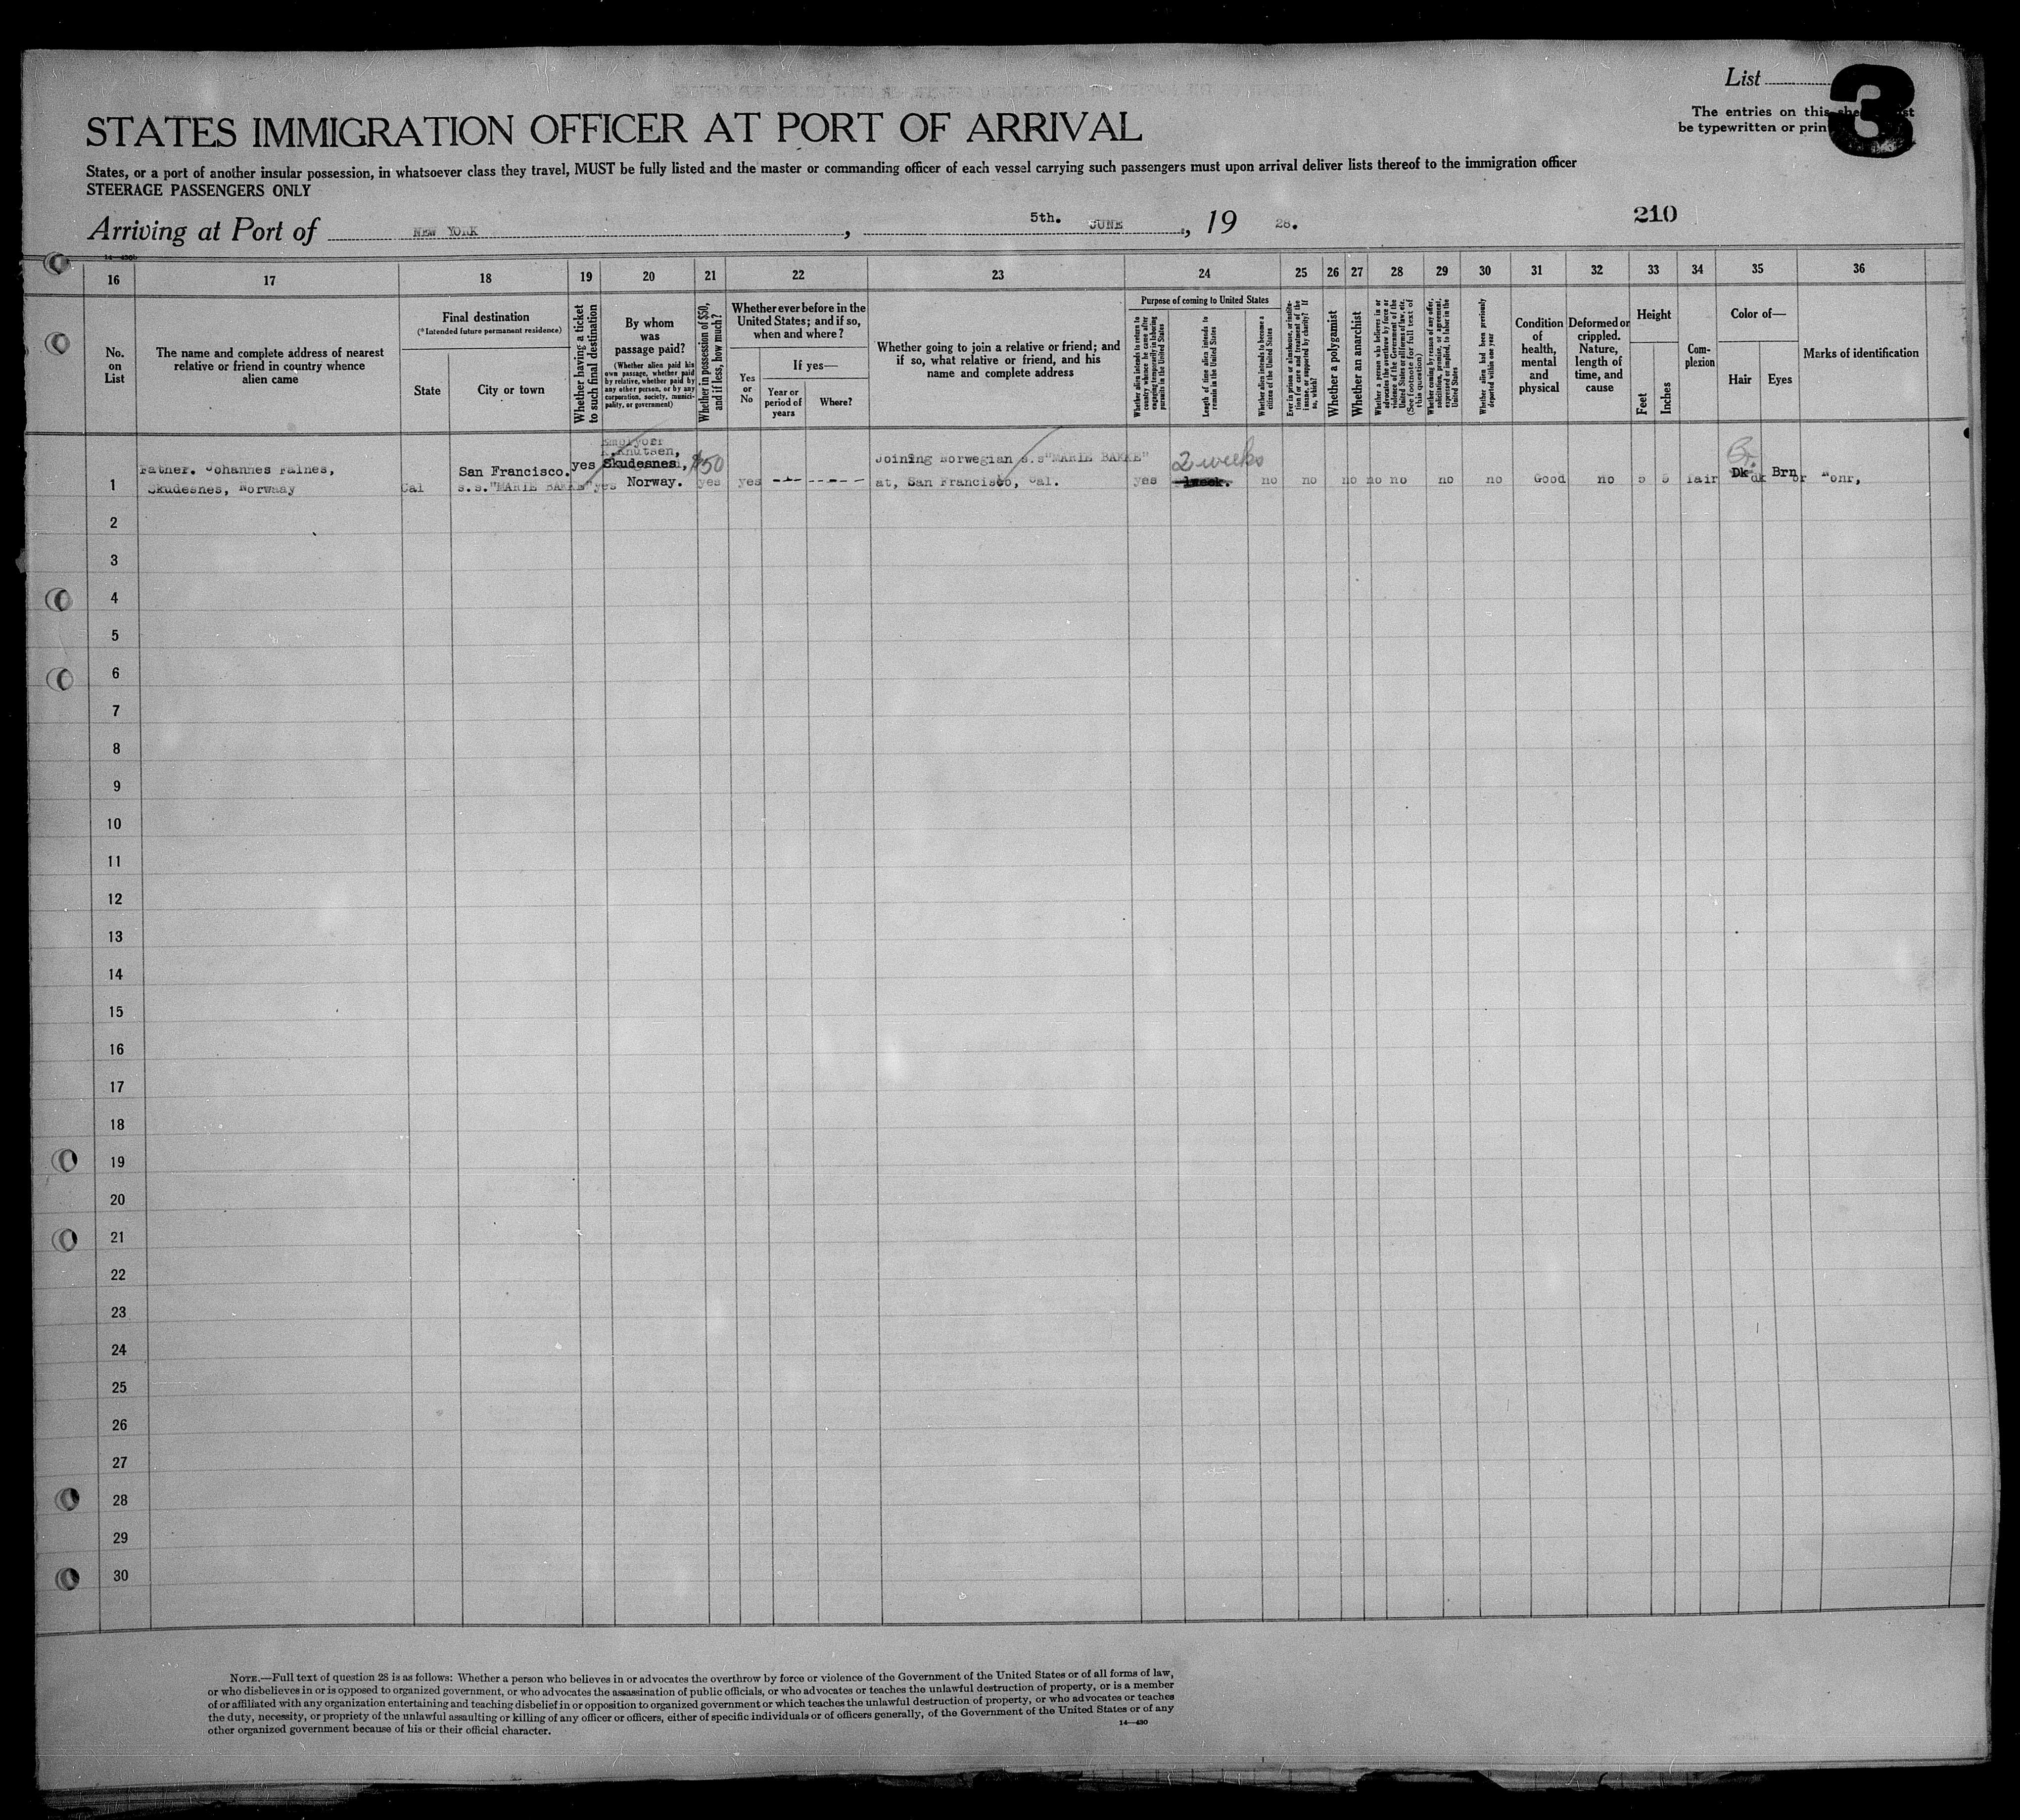 List 3
The entries on this sheet must
be typewritten or printed.
STATES IMMIGRATION OFFICER AT PORT OF ARRIVAL
States, or a port of another insular possession, in whatsoever class they travel, MUST be fully listed and the master or commanding officer of each vessel carrying such passengers must upon arrival deliver lists thereof to the immigration officer
STEERAGE PASSENGERS ONLY
Arriving at Port of NEW YORK, 5th. JUNE, 19 28.
210
16 17 18 19 20 21 22 23 24 25 26 27 28 29 30 31 32 33 34 35 36
No.
on
List
The name and complete address of nearest
relative or friend in country whence
alien came
Final destination
(*Intended future permanent residence)
State
City or town
Whether having a ticket
to such final destination
By whom
was
passage paid?
(Whether alien paid his
own passage, whether paid
by relative, whether paid by
any other person, or by any
corporation, society, munici-
pality, or government)
Whether in possession of $50,
and if less, how much?
Whether ever before in the
United States; and if so,
when and where?
Yes
or
No
If yes—
Year or
period of
years
Where?
Whether going to join a relative or friend; and
if so, what relative or friend, and his
name and complete address
Purpose of coming to United States
Whether alien intends to return to
country whence he came after
engaging temporarily in laboring
pursuits in the United States
Length of time alien intends to
remain in the United States
Whether alien intends to become a
citizen of the United States
Ever in prison or almshouse, or institu-
tion for care and treatment of the
insane, or supported by charity? If
so, which?
Whether a polygamist
Whether an anarchist
Whether a person who believes in or
advocates the overthrow by force or
violence of the Government of the
United States or all forms of law, etc.
(See footnote for full text of
this question)
Whether coming by reason of any offer,
solicitation, promise, or agreement,
expressed or implied, to labor in the
United States
Whether alien had been previously
deported within one year
Condition
of
health,
mental
and
physical
Deformed or
crippled.
Nature,
length of
time, and
cause
Height
Feet
Inches
Com-
plexion
Color of—
Hair
Eyes
Marks of identification
Father. Johannes Falnes,
Skudesnes, Norway
Cal
San Francisco.
s.s."MARIE BAKKE"
yes
yes
Employer
Knutsen,
Skudesnes,
Norway.
$50
yes
yes
Joining Norwegian s.s"MARIE BAKKE"
at, San Francisco, Cal.
yes
2 weeks
1week.
no no no no no no no Good no 5 fair
Br.
Dk dk
Brn
1
2
3
4
5
6
7
8
9
10
11
12
13
14
15
16
17
18
19
20
21
22
23
24
25
26
27
28
29
30
NOTE.—Full text of question 28 is as follows: Whether a person who believes in or advocates the overthrow by force or violence of the Government of the United States or of all forms of law,
or who disbelieves in or is opposed to organized government, or who advocates the assassination of public officials, or who advocates or teaches the unlawful destruction of property, or is a member
of or affiliated with any organization entertaining and teaching disbelief in or opposition to organized government or which teaches the unlawful destruction of property, or who advocates or teaches
the duty, necessity, or propriety of the unlawful assaulting or killing of any officer or officers, either of specific individuals or of officers generally, of the Government of the United States or of any
other organized government because of his or their official character.
14—430